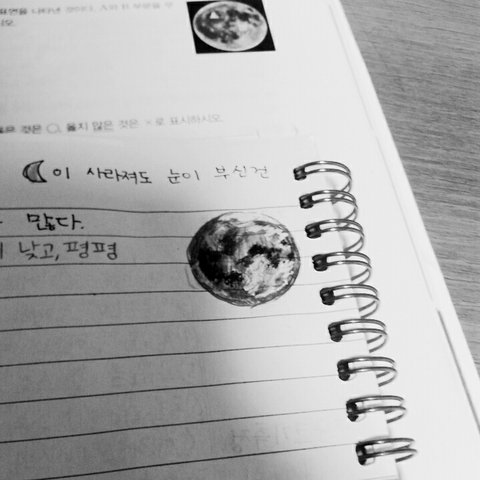 표면을 나타낸 것이다. A와 B 부분을
시오.
것은 ○, 옳지 않은 것은 ×로 표시하시오.
이 사라져도 눈이 부신건
많다.
낮고, 평평